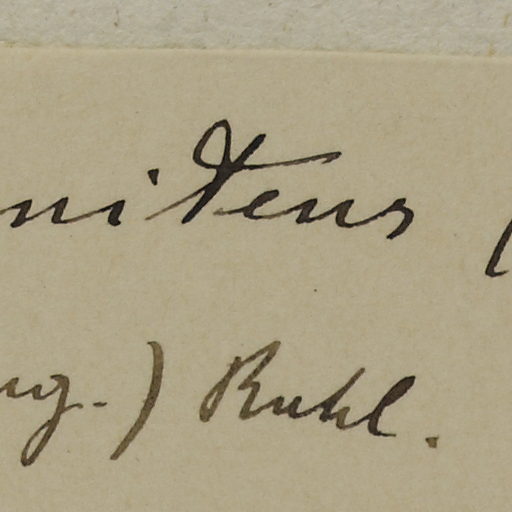 nitens (
ng.) Ruhl.